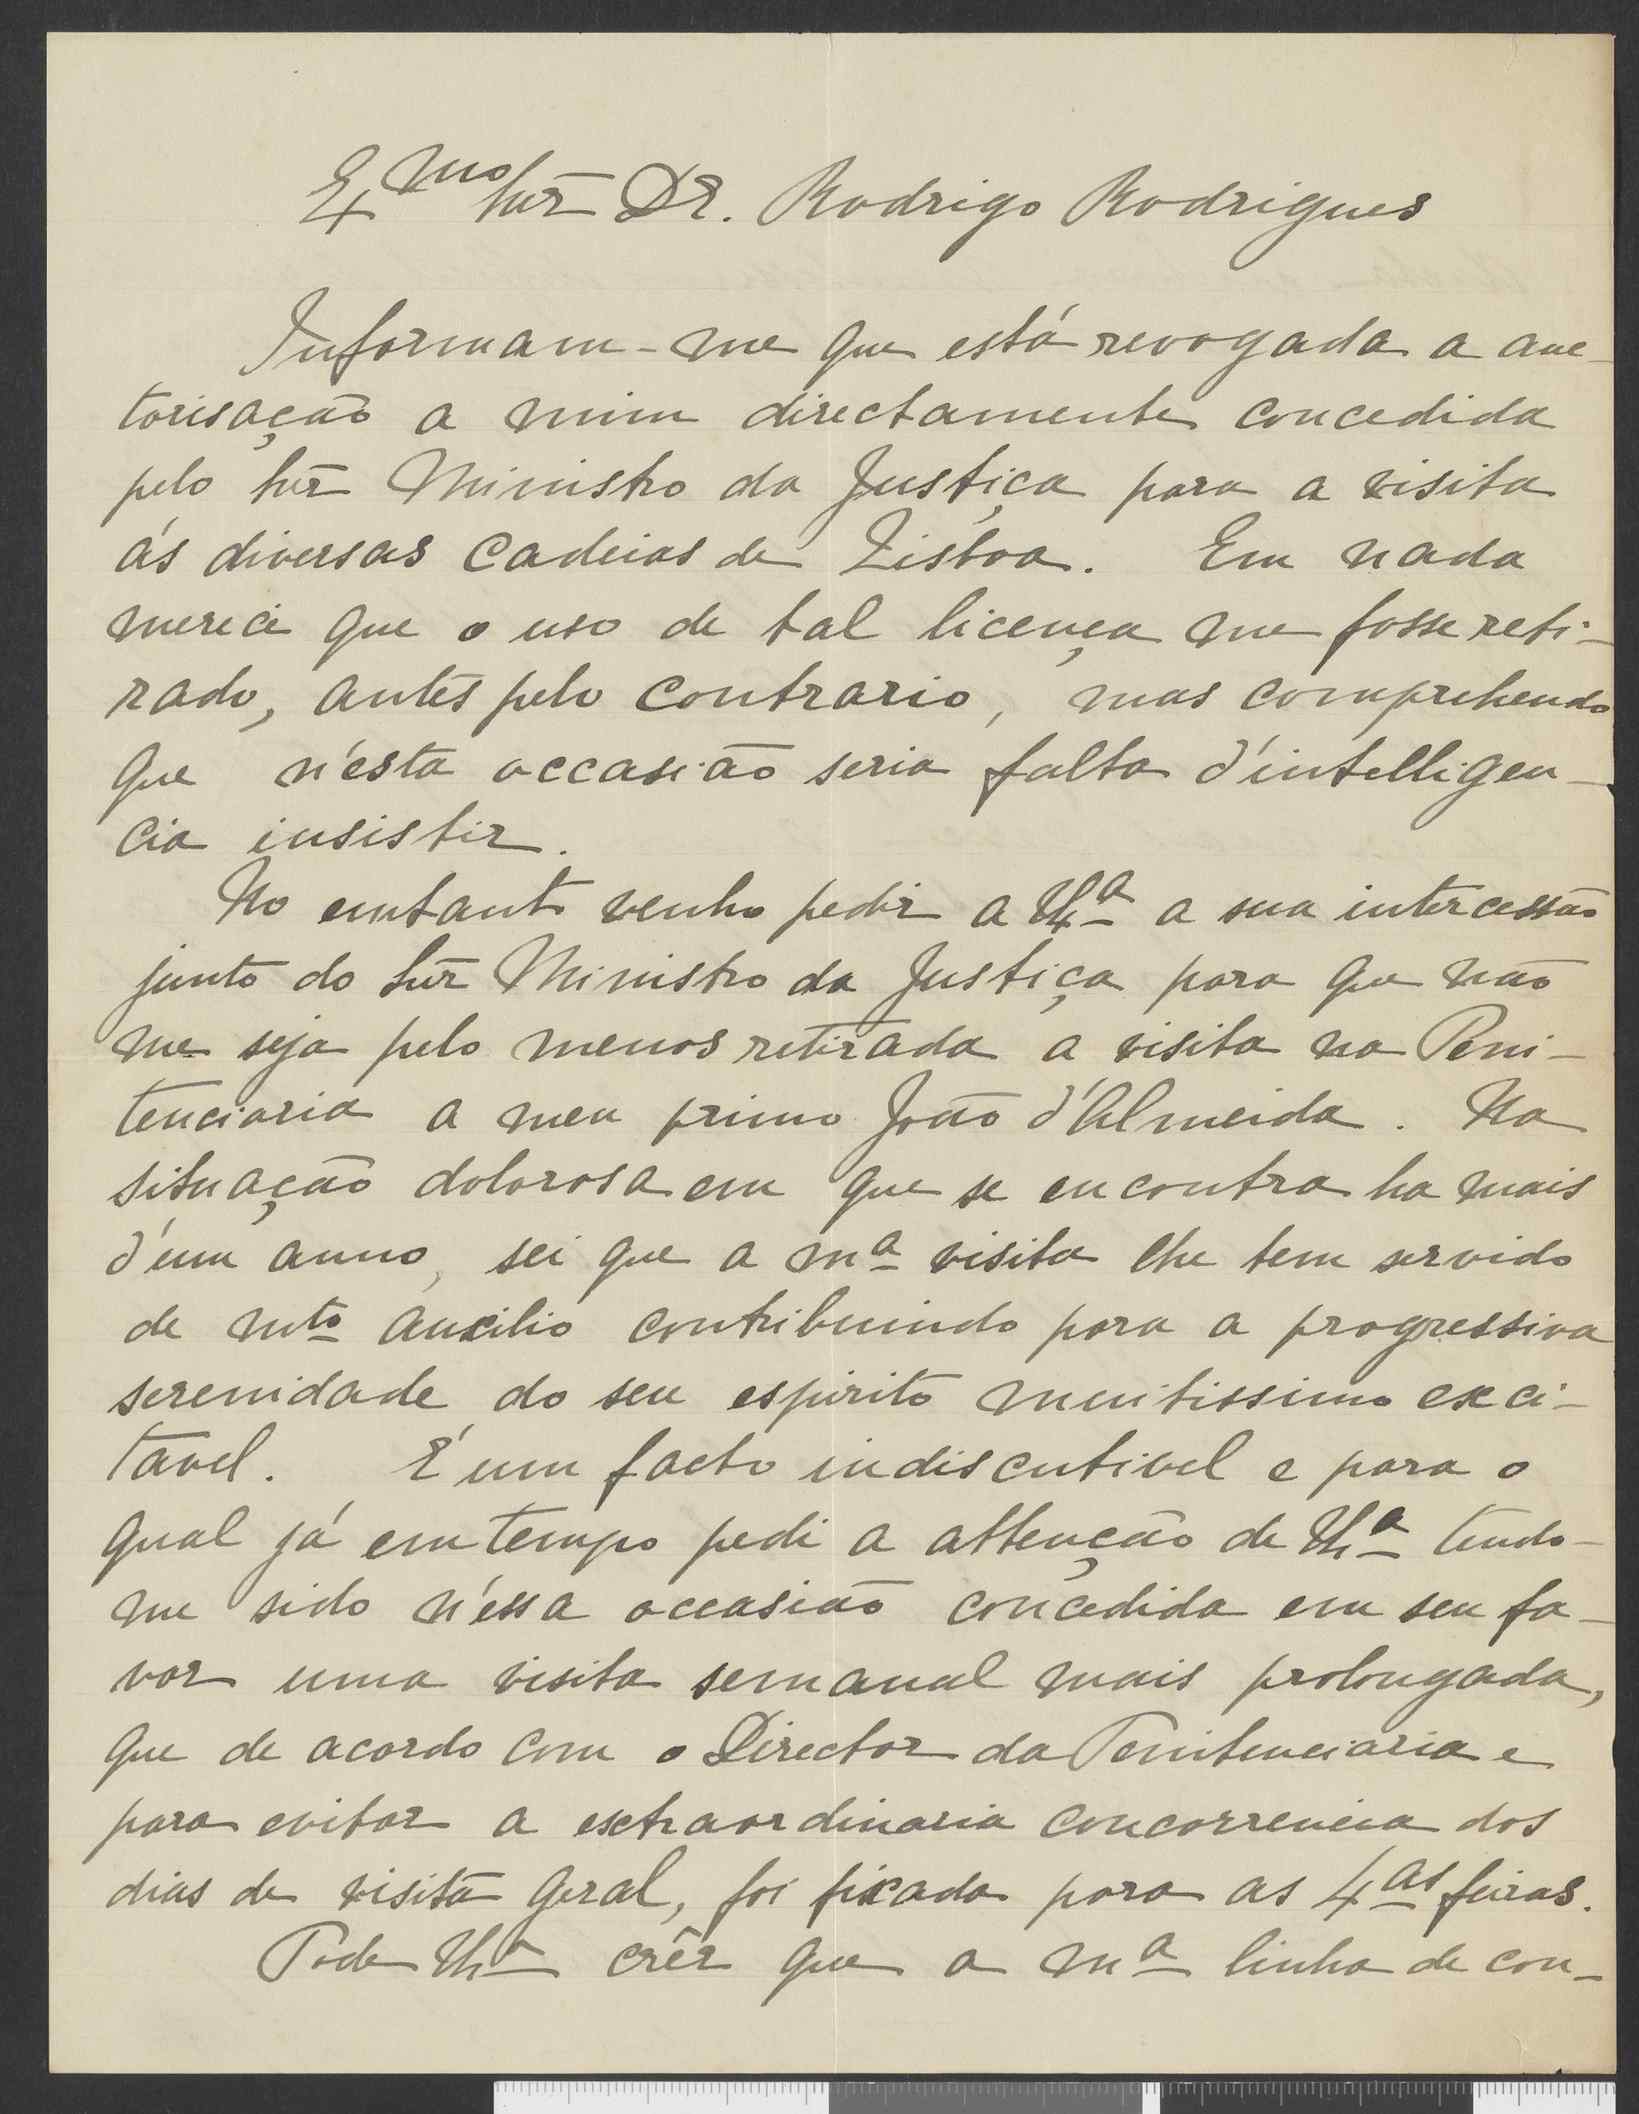 Ex.mo Snr Dr. Rodrigo Rodrigues
Informam-me que está revogada a auc-
torisação a mim directamente concedida
pelo Snr Ministro da Justiça para a visita
ás diversas cadeias de Lisboa. Em nada
mereci que o uso de tal licença me fosse reti-
rado, antes pelo contrario, mas comprehendo
que n'esta occasião seria falta d'intelligen-
cia insistir.
No emtanto venho pedir a V.Ex.a a sua intercessão
junto do Snr Ministro da Justiça para que não
me seja pelo menos retirada a visita na Peni-
tenciaria a meu primo João d'Almeida. Na
situação dolorosa em que se encontra ha mais
d'um anno, sei que a m.a visita lhe tem servido
de mto auxilio contribuindo para a progressiva
serenidade do seu espirito muitissimo exci-
tavel. É um facto indiscutivel e para o
qual já em tempo pedi a attenção de V.Ex.a tendo-
me sido n'essa occasião concedida em seu fa-
vor uma visita semanal mais prolongada,
que de acordo com o Director da Penitenciaria e
para evitar a extraordinaria concorrencia dos
dias de visita geral, foi fixada para as 4as feiras.
Pode V.Ex.a crêr que a m.a linha de con-